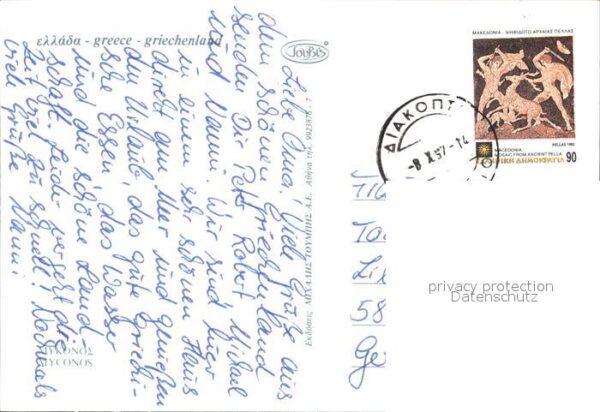 ελλάδα - greece - griechenland
Τουμπης
Liebe Oma! Viele Grüße aus
dem schönen Griechenland
senden Dir Peter, Robert, Michael
und Nanni. Wir sind hier
in einem sehr schönen Haus
direkt am Meer und genießen
den Urlaub, das gute Griechi-
sche Essen, das Wasser
und die schöne Land-
schaft. Leider vergeht die
Zeit viel zu schnell! Nochmals
viele Grüße Nanni
ΜΥΚΟΝΟΣ
MYCONOS
Εκδόσεις ΜΙΧΑΛΗΣ ΤΟΥΜΠΗΣ Α.Ε. Αθήνα τηλ. 9923876-7
ΜΑΚΕΔΟΝΙΑ - ΨΗΦΙΔΩΤΟ ΑΡΧΑΙΑΣ ΠΕΛΛΑΣ
HELLAS 1992
MACEDONIA
MOSAIC FROM ANCIENT PELLA
ΕΛΛΗΝΙΚΗ ΔΗΜΟΚΡΑΤΙΑ 90
ΔΙΑΚΟΠΤ
-8 X 97-14
58
Ge
privacy protection
Datenschutz